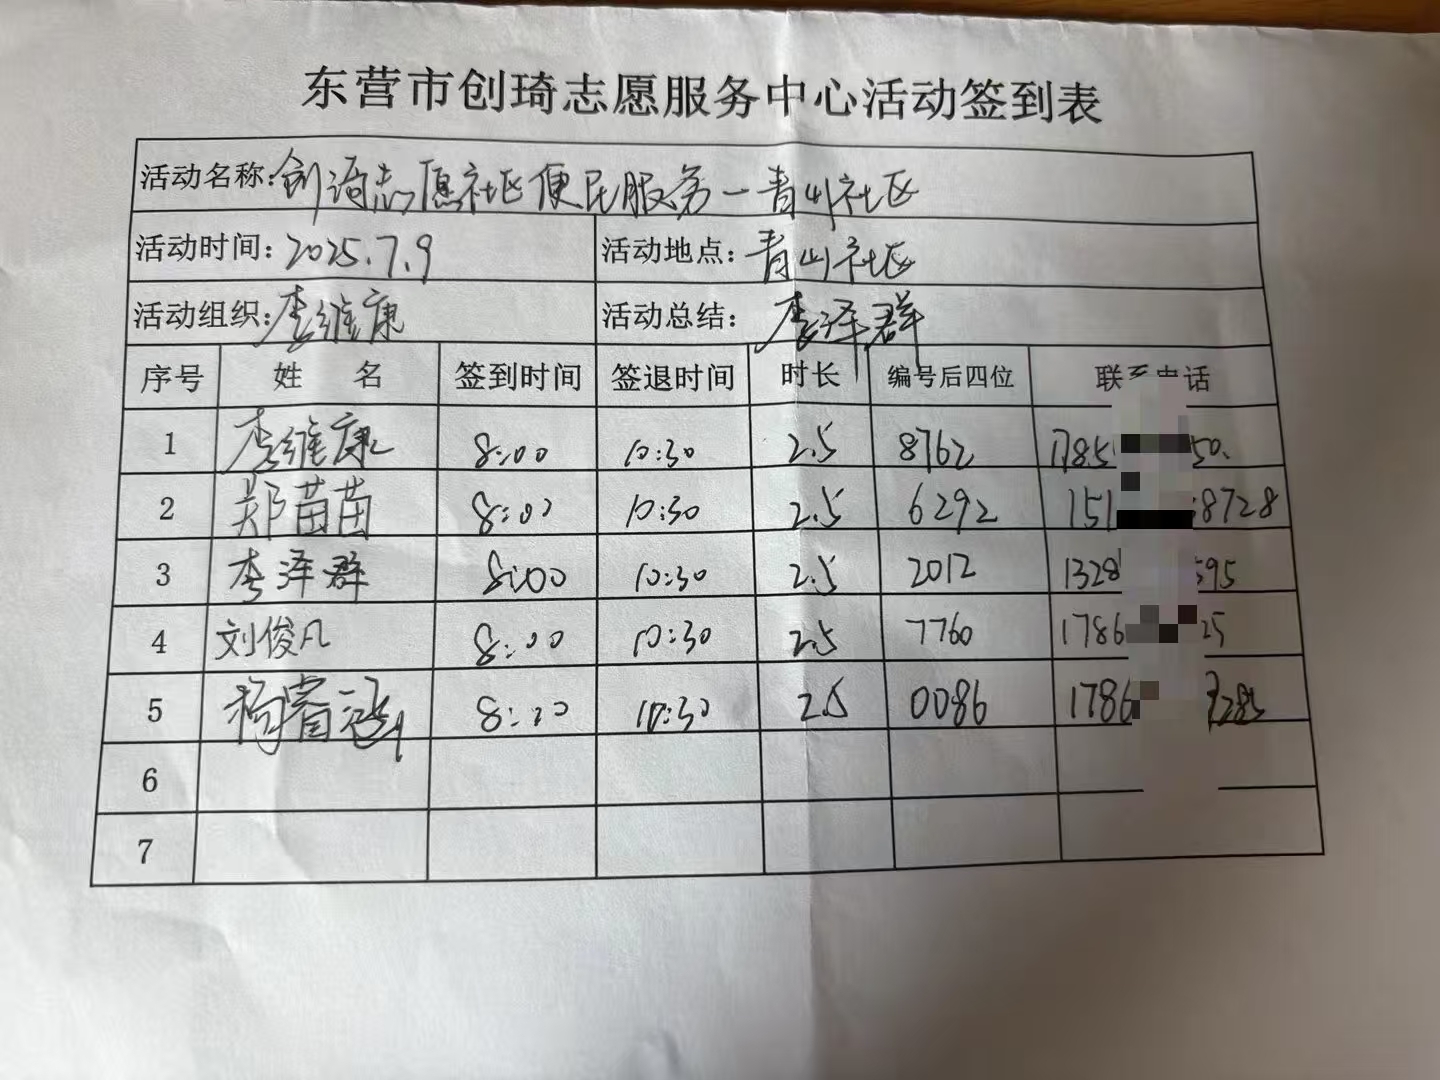 东营市创琦志愿服务中心活动签到表
活动名称：创琦志愿社区便民服务一青山社区
活动时间：2025.7.9 活动地点：青山社区
活动组织：李维康 活动总结：李泽群
序号 姓 名 签到时间 签退时间 时长 编号后四位 联系电话
1 李维康 8:00 10:30 2.5 8762 1785 50.
2 郑苗苗 8:00 10:30 2.5 6292 151 8728
3 李泽群 8:00 10:30 2.5 2012 1328 595
4 刘俊凡 8:00 10:30 2.5 7760 1786 25
5 杨睿涵 8:00 10:30 2.5 0086 1786 285
6
7